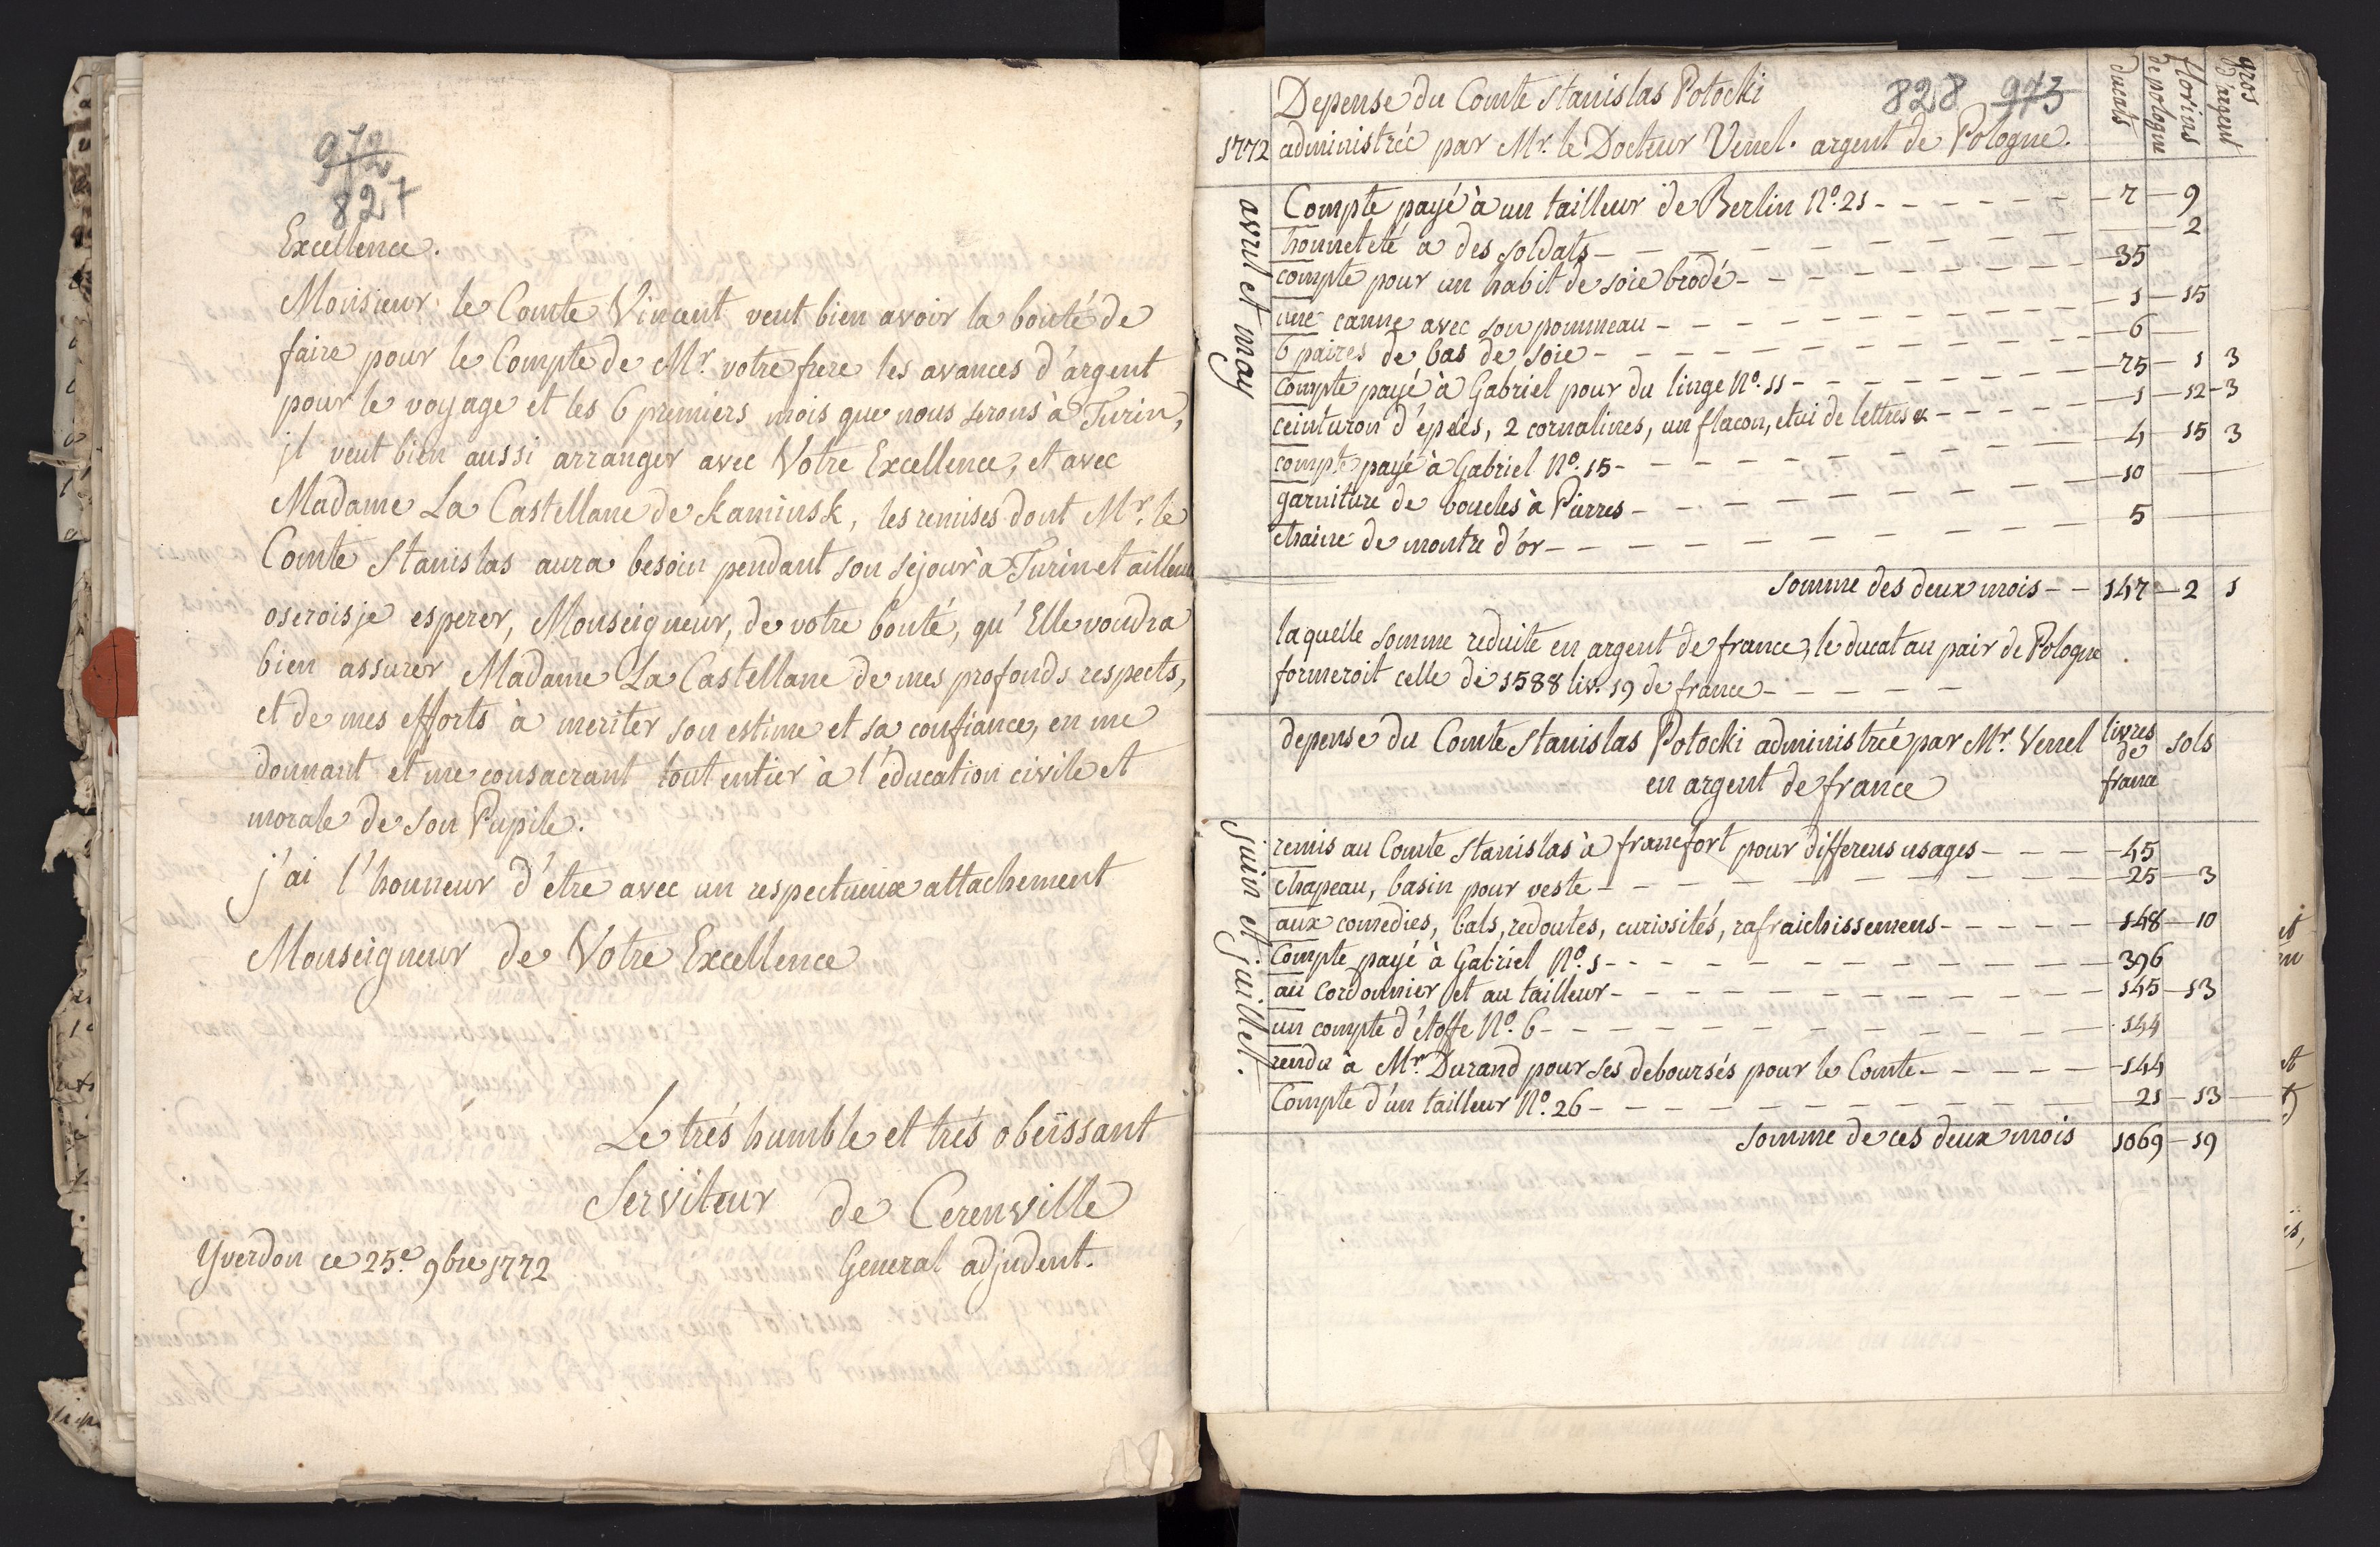 972
827
Excellence.
Monsieur le Comte Vincent veut bien avoir la bonté de
faire pour le Compte de Mr. votre frere les avances d'argent
pour le voyage et les 6 premiers mois que nous serons à Turin,
il veut bien aussi arranger avec Votre Excellence, et avec
Madame La Castellane de Kaminsk, les remises dont Mr. le
Comte Stanislas aura besoin pendant son sejour à Turin et ailleurs
oserois je esperer, Monseigneur, de votre bonté, qu'Elle voudra
bien assurer Madame La Castellane de mes profonds respects,
et de mes efforts à meriter son estime et sa confiance, en me
donnant et me consacrant tout entier à l'éducation civile et
morale de son Pupile.
j'ai l'honneur d'etre avec un respectueux attachement
Monseigneur de Votre Excellence
Le trés humble et trés obeïssant
Serviteur de Cerenville
General adjudent.
Yverdon ce 25.e 9bre 1772
828 973
Depense du Comte Stanislas Potocki
1772 administrée par Mr. le Docteur Venel. argent de Pologne.
ducats
florins de pologne
gros d'argent
avril et may
Compte payé à un tailleur de Berlin No. 21 - 7 - 9
honneteté à des soldats - 2
compte pour un habit de soie brodé - 35
une canne avec son pommeau - 1 - 15
6 paires de bas de soie - 6
compte payé à Gabriel pour du linge No. 11 - 75 - 1 3
ceinturon d'épées, 2 cornalines, un flacon, etui de lettres & - 1 - 12 - 3
compte payé à Gabriel No. 15 - 4 - 15 3
garniture de boucles à Pierres - 10
chaine de montre d'or - 5
somme des deux mois - 147 - 2 1
laquelle somme reduite en argent de france, le ducat au pair de Pologne
formeroit celle de 1588 liv. 19 de france -
depense du Comte Stanislas Potocki administrée par Mr. Venel
en argent de france
livres de france
sols
Juin et juillet.
remis au Comte Stanislas à francfort pour differens usages - 45
chapeau, basin pour veste - 25 - 3
aux comedies, bals, redoutes, curiosités, rafraichissemens - 148 - 10
Compte payé à Gabriel No. 1 - 396
au cordonnier et au tailleur - 145 - 13
un compte d'étoffe No. 6 - 144
rendu à Mr. Durand pour ses deboursés pour le Comte - 144
Compte d'un tailleur No. 26 - 21 - 13
somme de ces deux mois 1069 - 19